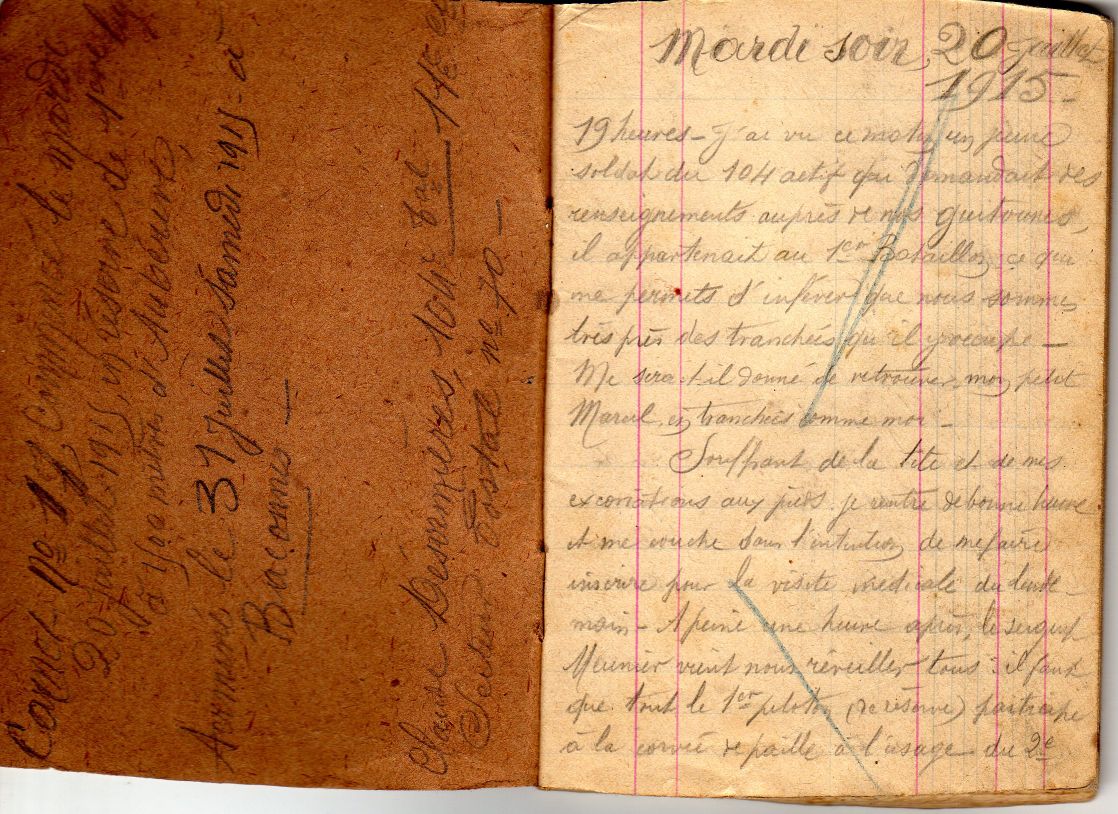 Carnet Nº 11, Commencé le Mardi
20 Juillet 1915, en réserve de 1ère ligne
à 400 mètres d'Aubérive,
Terminé le 31 Juillet samedi 1915 à
Baconnes
Claude Desnmières, 104e
Secteur Postal nº 70 —
Mardi soir, 20 Juillet
1915 —
19 heures — J'ai vu ce matin un jeune
soldat du 104 actif qui demandait des
renseignements auprès de nos guitounes,
il appartenait au 1er Bataillon, ce qui
me permets d'inférer que nous sommes
très près des tranchées qu'il y occupe —
Me sera-t-il donné de retrouver mon petit
Marcel, en tranchées comme moi —
Souffrant de la tête et de mes
excoriations aux pieds, je rentre de bonne heure
et me couche dans l'intention de me faire
inscrire pour la visite médicale du lende-
main — A peine une heure après, le sergent
Meunier vient nous réveiller tous : il faut
que tout le 1er peloton (de réserve) participe
à la corvée de paille à l'usage du 2e